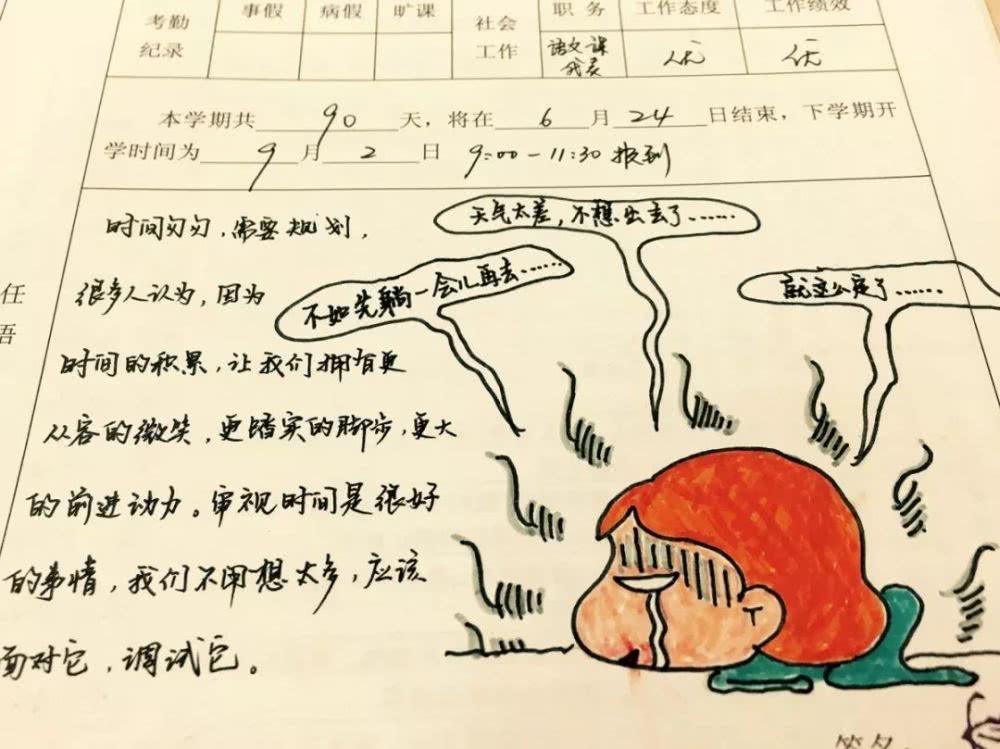 考勤 纪录 事假 病假 旷课 社会 工作 职务 工作态度 工作绩效
语文课代表 优 优
本学期共 90 天，将在 6 月 24 日结束，下学期开
学时间为 9 月 2 日 9:00-11:30 报到
任
语
时间匆匆，需要规划，
很多人认为，因为
时间的积累，让我们拥有更
从容的微笑，更踏实的脚步，更大
的前进动力。审视时间是很好
的事情，我们不用想太多，应该
面对它，调试它。
天气太差，不想出去了……
不如先躺一会儿再去……
就这么定了……